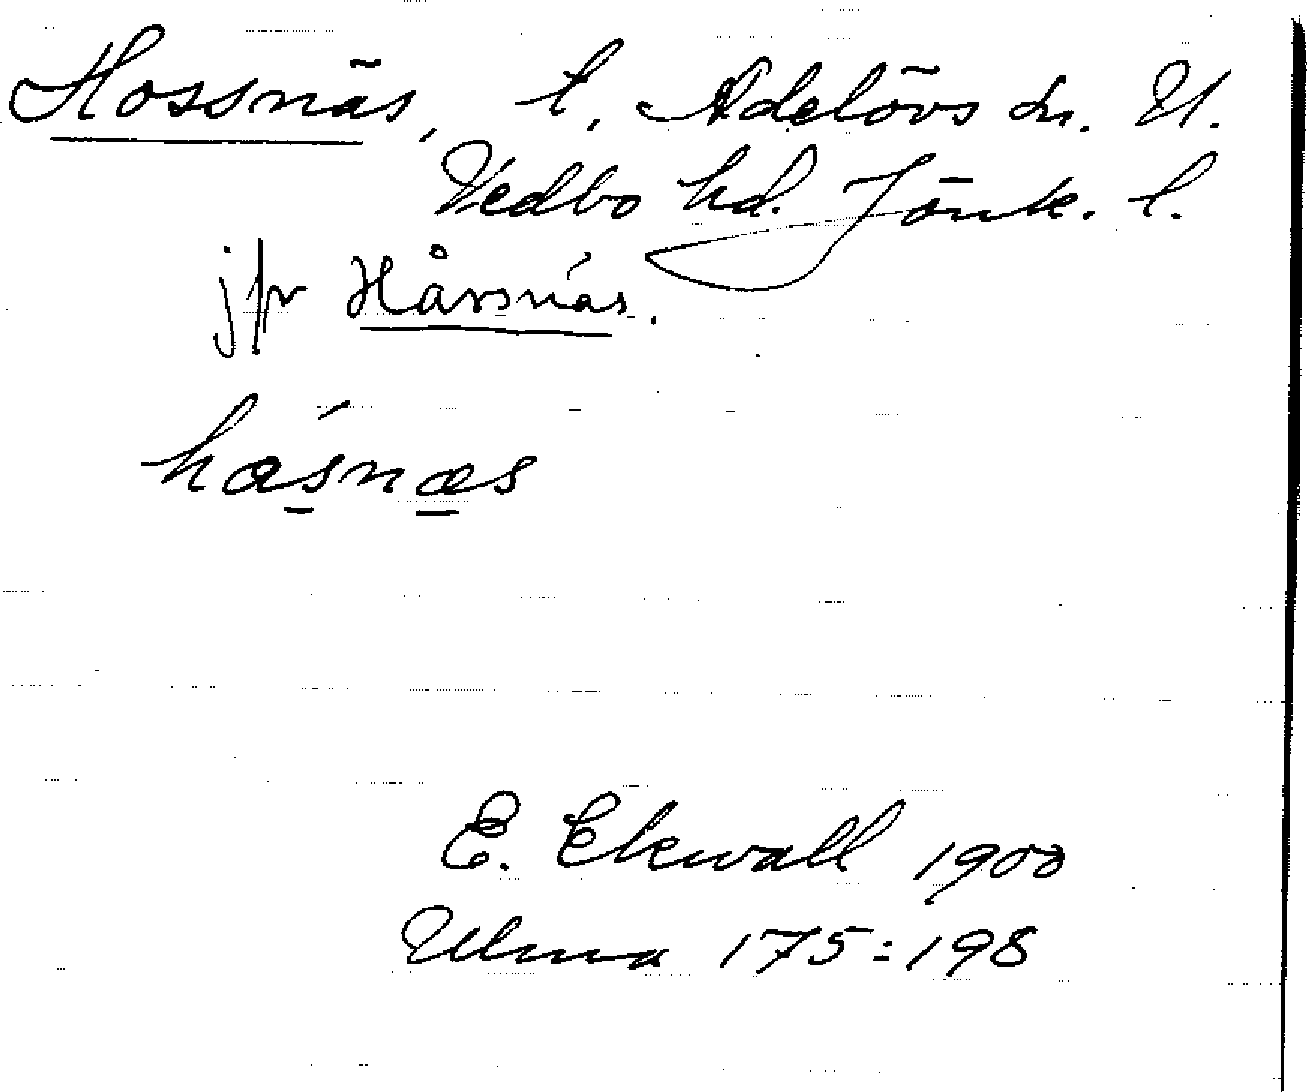 Hossnäs, l, Adelövs sn. N.
Vedbo hd. Jönk. l.
jfr Hårsnäs.
hásnæs
E. Ekwall 1900
Ulma 175:198